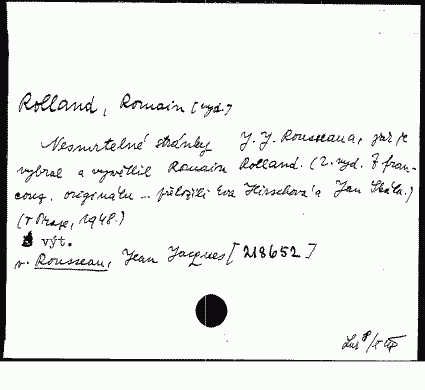 Rolland, Romain [vyd.]
Nesmrtelné stránky J. J. Rousseaua, jak je
vybral a vysvětlil Romain Rolland. (2. vyd. Z fran-
couz. originálu ... přeložili Eva Hirschová a Jan Skála.)
(V Praze, 1948.)
8° výt.
v. Rousseau, Jean Jacques [218652]